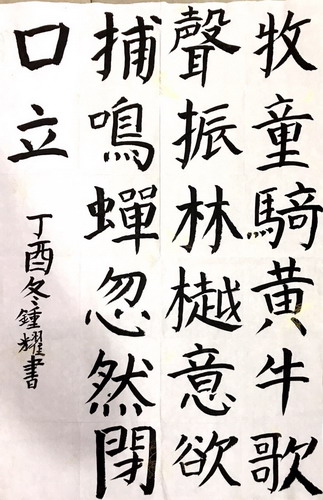 牧童騎黄牛歌
聲振林樾意欲
捕鳴蟬忽然閉
口立
丁酉冬鍾耀書